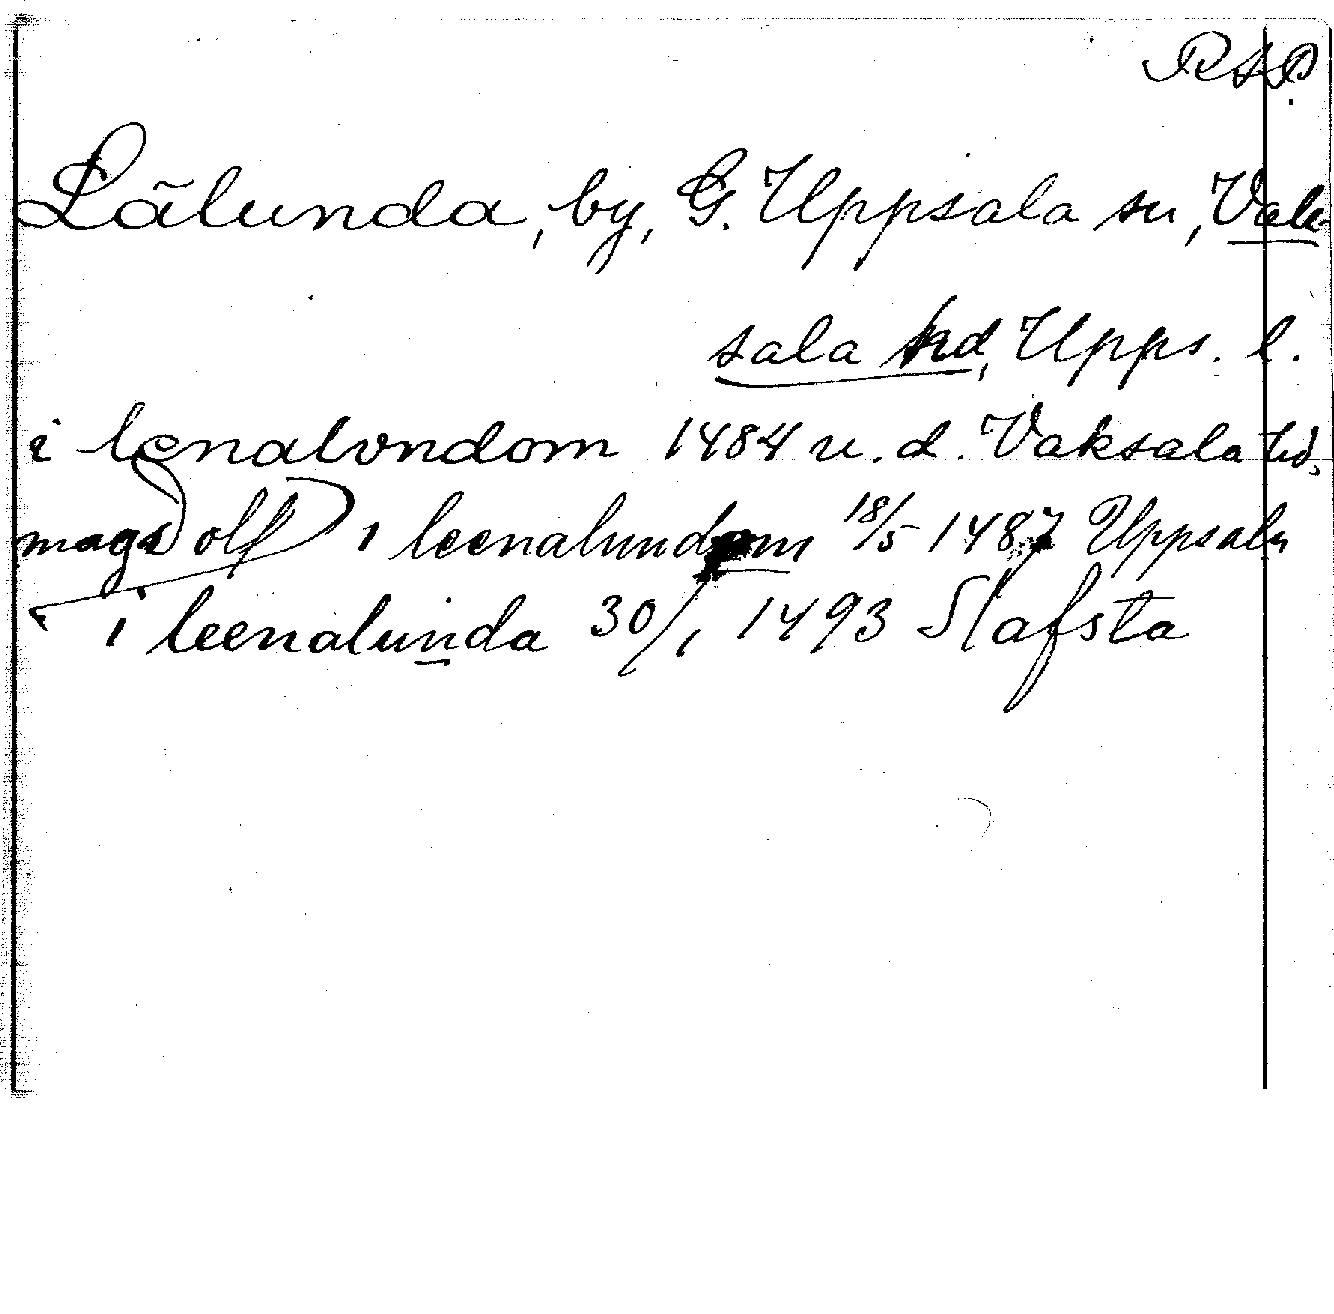 RAP.
Lãlunda, by, G. Uppsala sn, Vak-
sala hd, Upps. l.
i lenalvndom 1484 u. d. Vaksala hd.
mags olff i leenalundom 18/5 1487 Uppsala
i leenalunda 30/1 1493 Slafsta